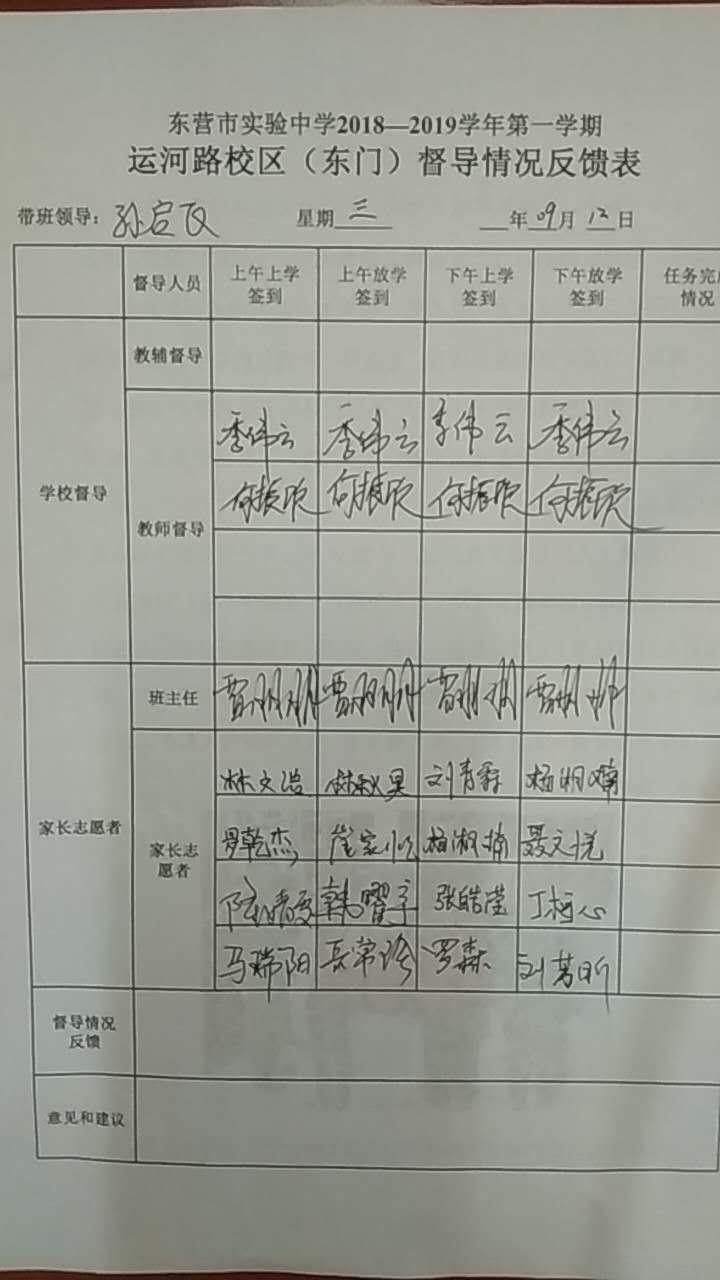 东营市实验中学2018—2019学年第一学期
运河路校区（东门）督导情况反馈表
带班领导： 星期 三 年 09 月 12 日
督导人员 上午上学签到 上午放学签到 下午上学签到 下午放学签到 任务完 情况
学校督导
教辅督导
教师督导
季伟云 季伟云 季伟云 季伟云
何振欣 何振欣 何振欣 何振欣
家长志愿者
班主任
家长志愿者
林文浩 林秋昊 刘青霖
罗乾杰 聂文悦
张皓莹 丁柯心
马瑞阳 罗森 刘芳昕
督导情况反馈
意见和建议